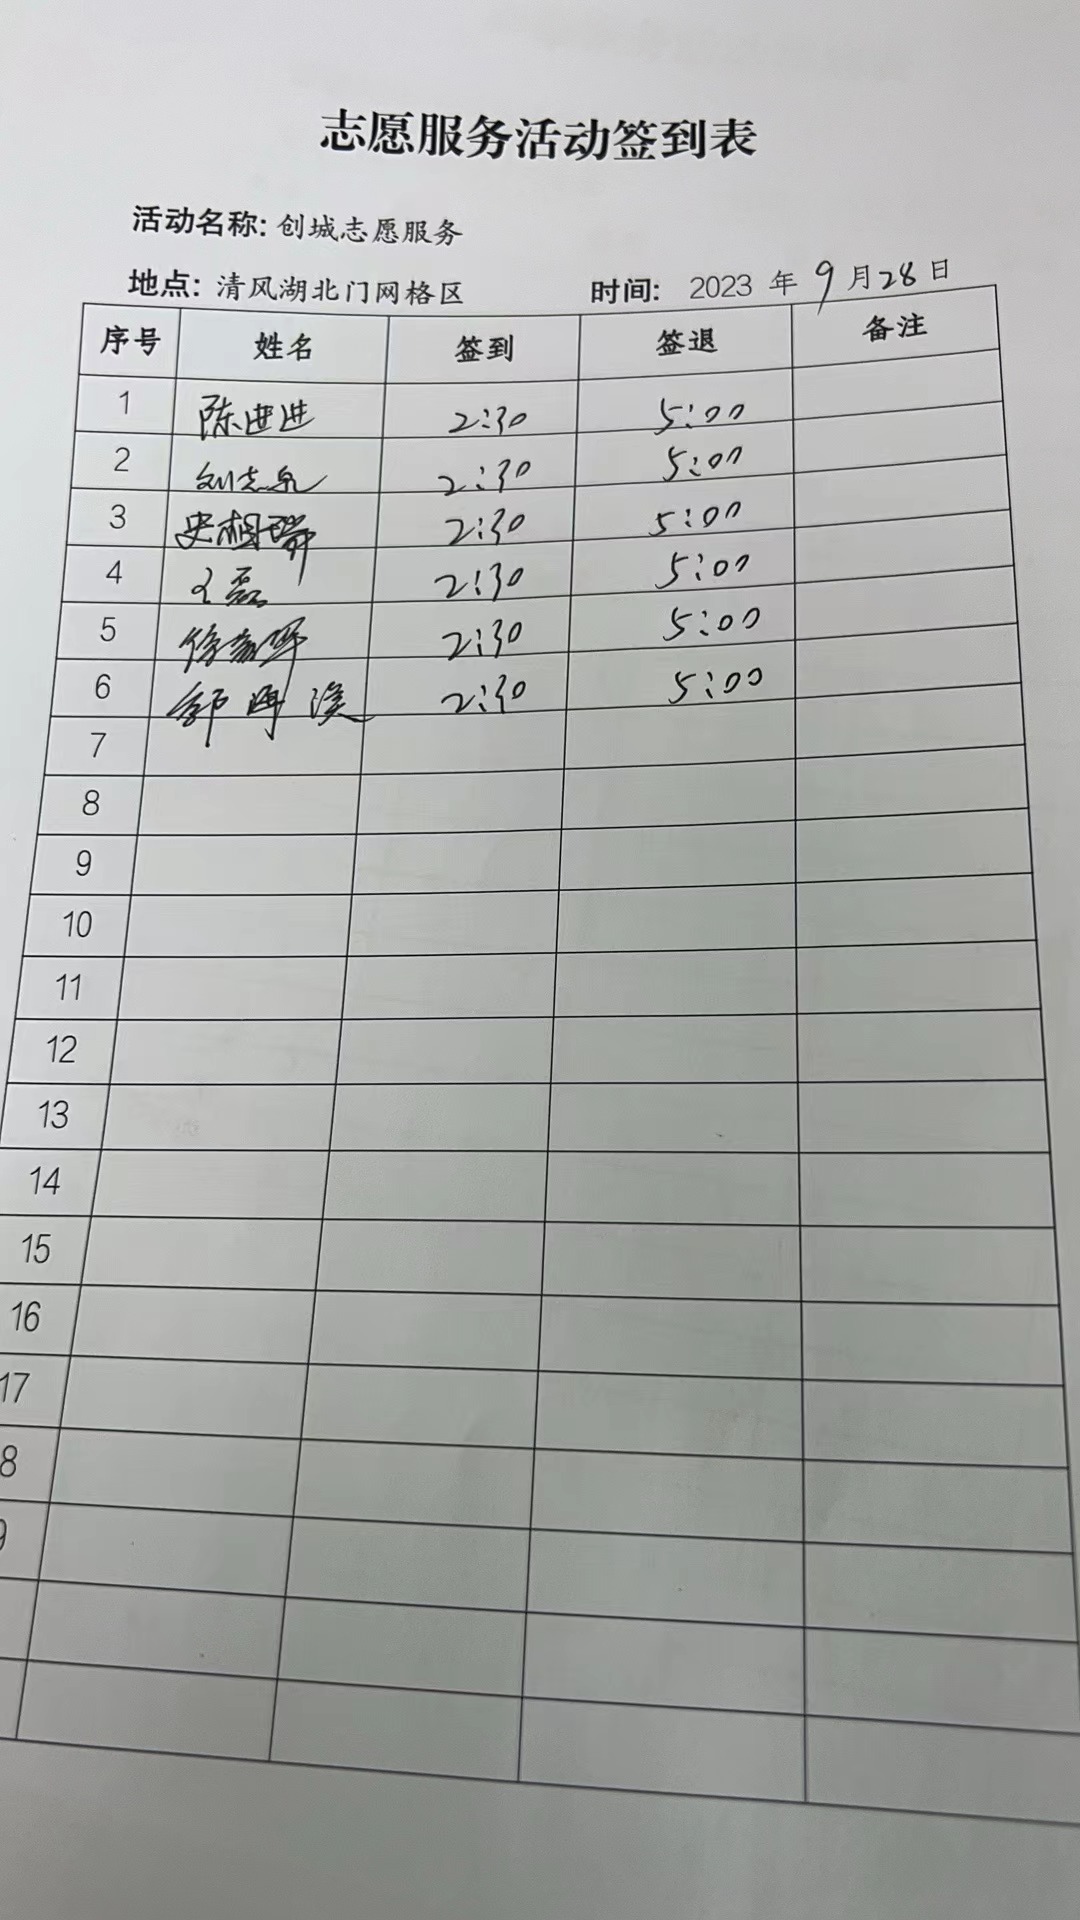 志愿服务活动签到表
活动名称: 创城志愿服务
地点: 清风湖北门网格区 时间: 2023 年 9 月 28 日
序号 姓名 签到 签退 备注
1 陈进进 2:30 5:00
2 刘志泉 2:30 5:00
3 史相瑞 2:30 5:00
4 王磊 2:30 5:00
5 2:30 5:00
6 2:30 5:00
7
8
9
10
11
12
13
14
15
16
17
8
9